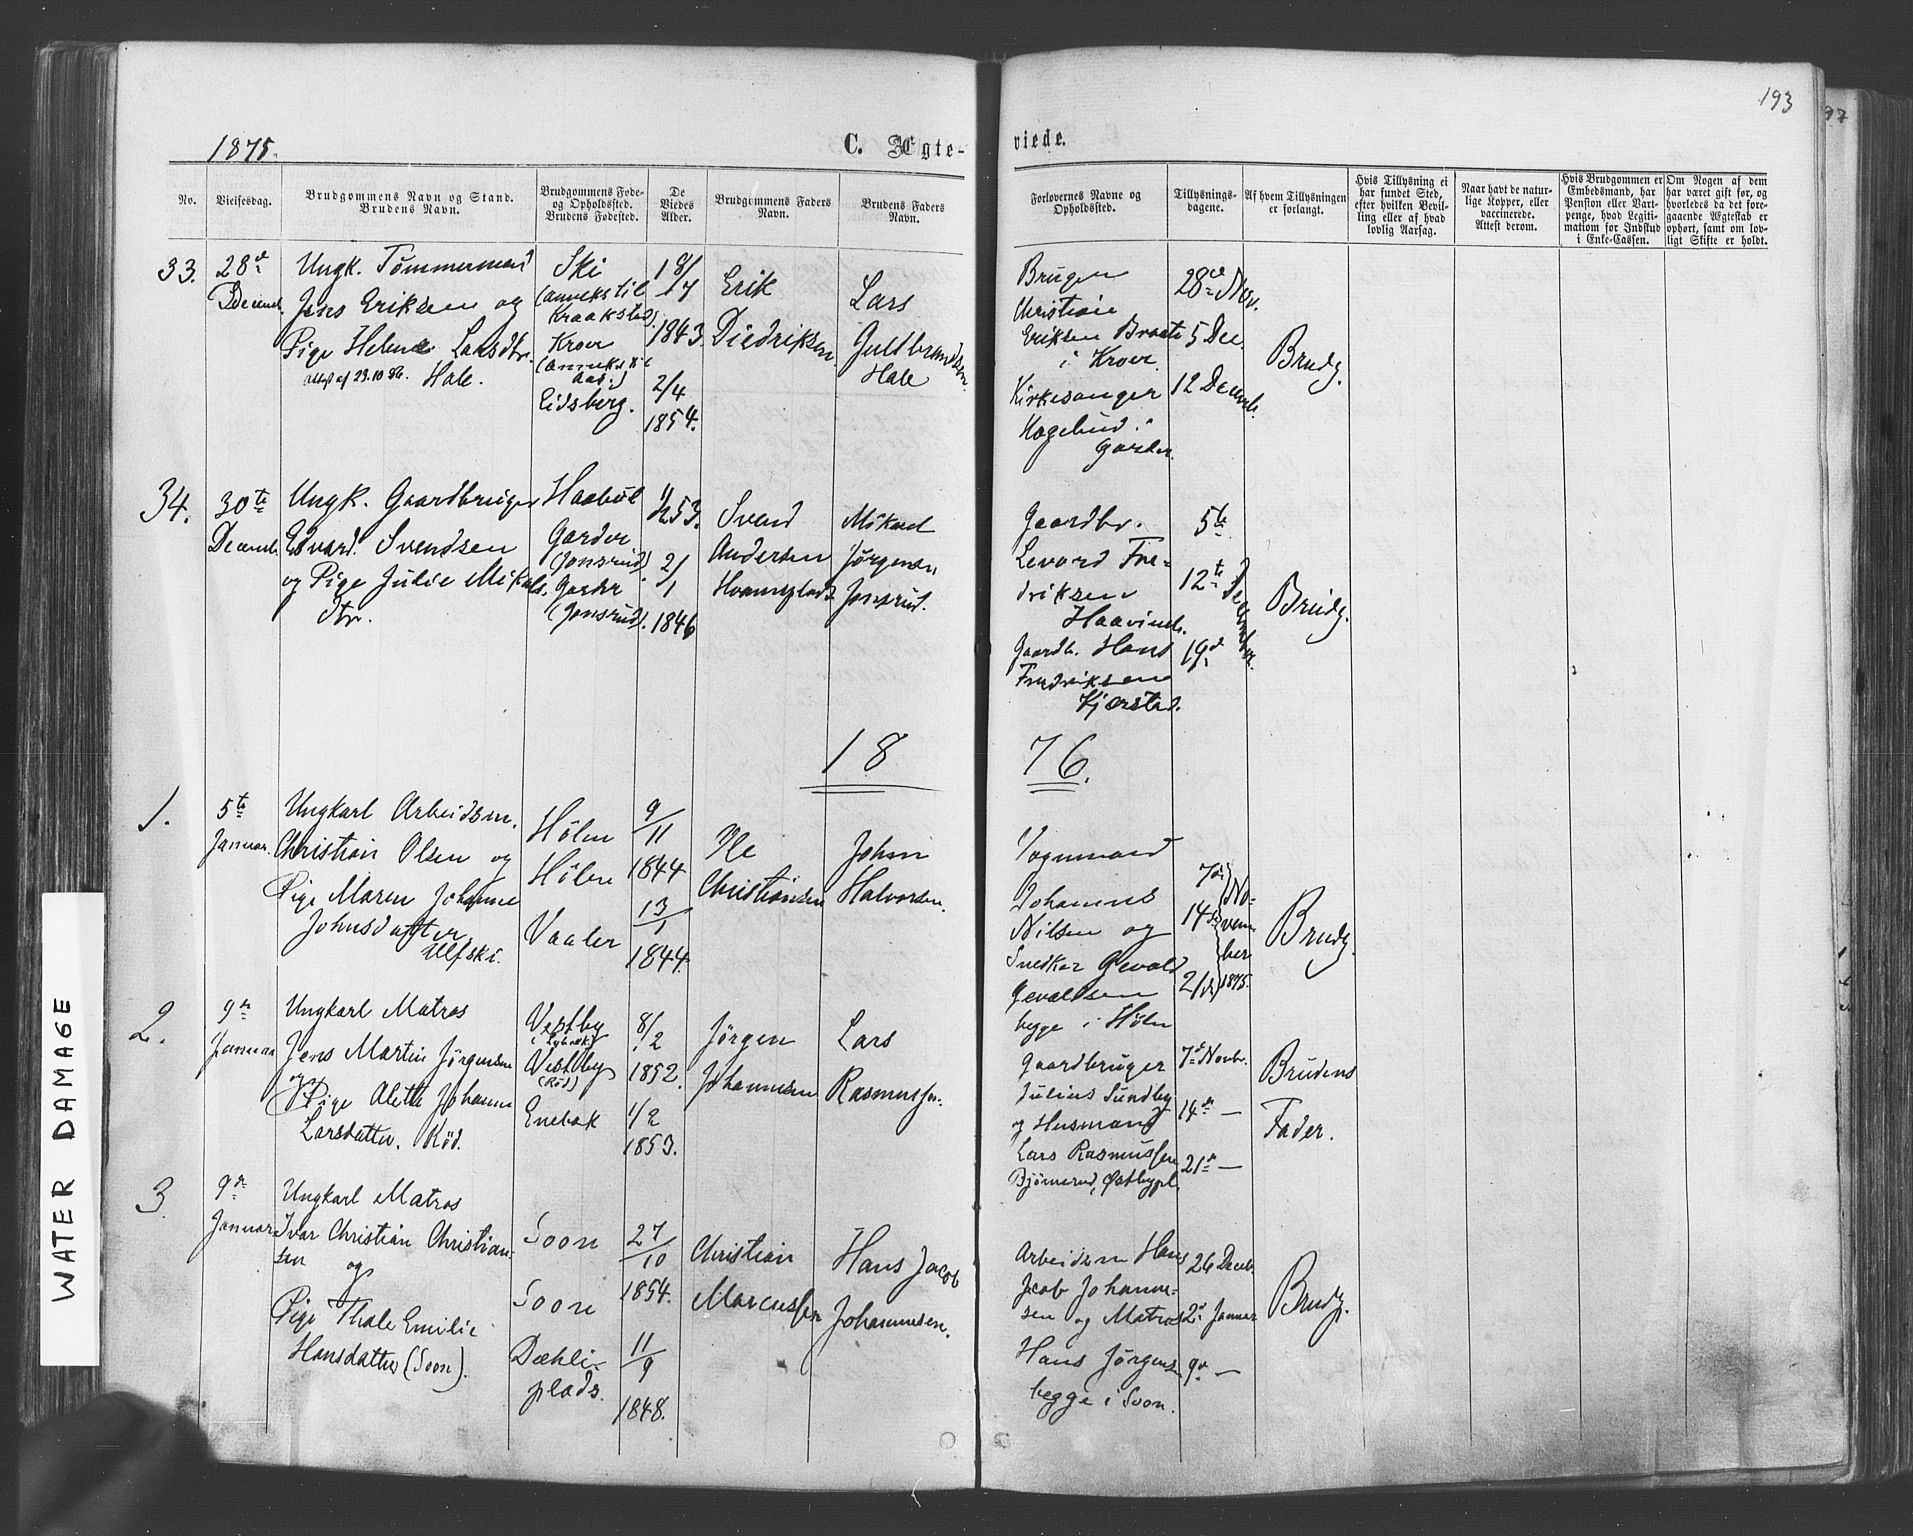 193
97
1875.
C. Ægte-
viede.
No.
Vielsesdag.
Brudgommens Navn og Stand.
Brudens Navn.
Brudgommens Føde-
og Opholdssted.
Brudens Fødested.
De
Viedes
Alder.
Brudgommens Faders
Navn.
Brudens Faders
Navn.
Forlovernes Navne og
Opholdssted.
Tillysnings-
dagene.
Af hvem Tillysningen
er forlangt.
Hvis Tillysning ei
har fundet Sted,
efter hvilken Bevil-
ling eller af hvad
lovlig Aarsag.
Naar havt de natur-
lige Kopper, eller
vaccinerede.
Attest derom.
Hvis Brudgommen er
Embedsmand, har
Pension eller Vart-
penge, hvad Legiti-
mation for Indskud
i Enke-Cassen.
Om Nogen af dem
har været gift før, og
hvorledes da det fore-
gaaende Ægteskab er
ophørt, samt om lov-
ligt Skifte er holdt.
33.
28de
Decemb.
Ungk. Tømmermand
Jens Eriksen og
Pige Helene Larsdtr.
Hole.
Ski
(anneks til
Kraakstad)
Kroer
(anneks til
Aas)
Eidsberg.
18/7
1843.
2/4
1854.
Erik
Diedriksen
Lars
Gulbrandsen
Hole
Bruger
Christian
Eriksen Braate
i Kroer.
Kirkesanger
Hagelund i
Garder.
28de Nov.
5 Dec.
12 Decemb.
Brudg.
34.
30te
Decemb.
Ungk. Gaardbruger
Edvard Svendsen
og Pige Julie Mikals-
dtr.
Haabøl
Garder
(Jonsrud).
Garder
(Jonsrud).
53.
2/1
1846
Svend
Andersen
Mikael
Jørgensen
Jonsrud.
Gaardbr.
Levord Fre-
driksen
Haavind.
Gaardb. Hans
Fredriksen
Kjærstad.
5te
12te
19de
December.
Brudg.
18
76.
1.
5te
Januar.
Ungkarl Arbeidsm.
Christian Olsen og
Pige Maren Johanne
Johnsdatter
Ulfski.
Hølen
Hølen
Vaaler
9/11
1844
13/1
1844.
Ole
Christiansen
John
Halvorsen.
Vognmand
Johannes
Nilsen og
Snedker Gevald
Gevaldsen
begge i Hølen
7de
14de
21de
No-
vem-
ber
1875.
Brudg.
2.
9de
Januar
Ungkarl Matros
Jens Martin Jørgensen
og
Pige Alette Johanne
Larsdatter. Rød.
Vestby
Vestby
(Rød)
Enebak
8/2
1852.
1/2
1853.
Jørgen
Johannesen
Lars
Rasmussen.
Gaardbruger
Julius Sundby
og Husmand
Lars Rasmussen
Bjørnerud, Østbypl.
7de Novbr.
14de —
21de —
Brudens
Fader.
3.
9de
Januar
Ungkarl Matros
Ivar Christian Christian-
sen og
Pige Thale Emilie
Hansdatter (Soon).
Soon
Soon
Dæhli-
plads.
27/10
1854.
11/9
1848.
Christian
Marcussen
Hans Jacob
Johannesen.
Arbeidsm Hans
Jacob Johanne-
sen og Matros
Hans Jørgensen
begge i Soon.
26 Decbr.
2de Januar
9de —
Brudg.
WATER DAMAGE